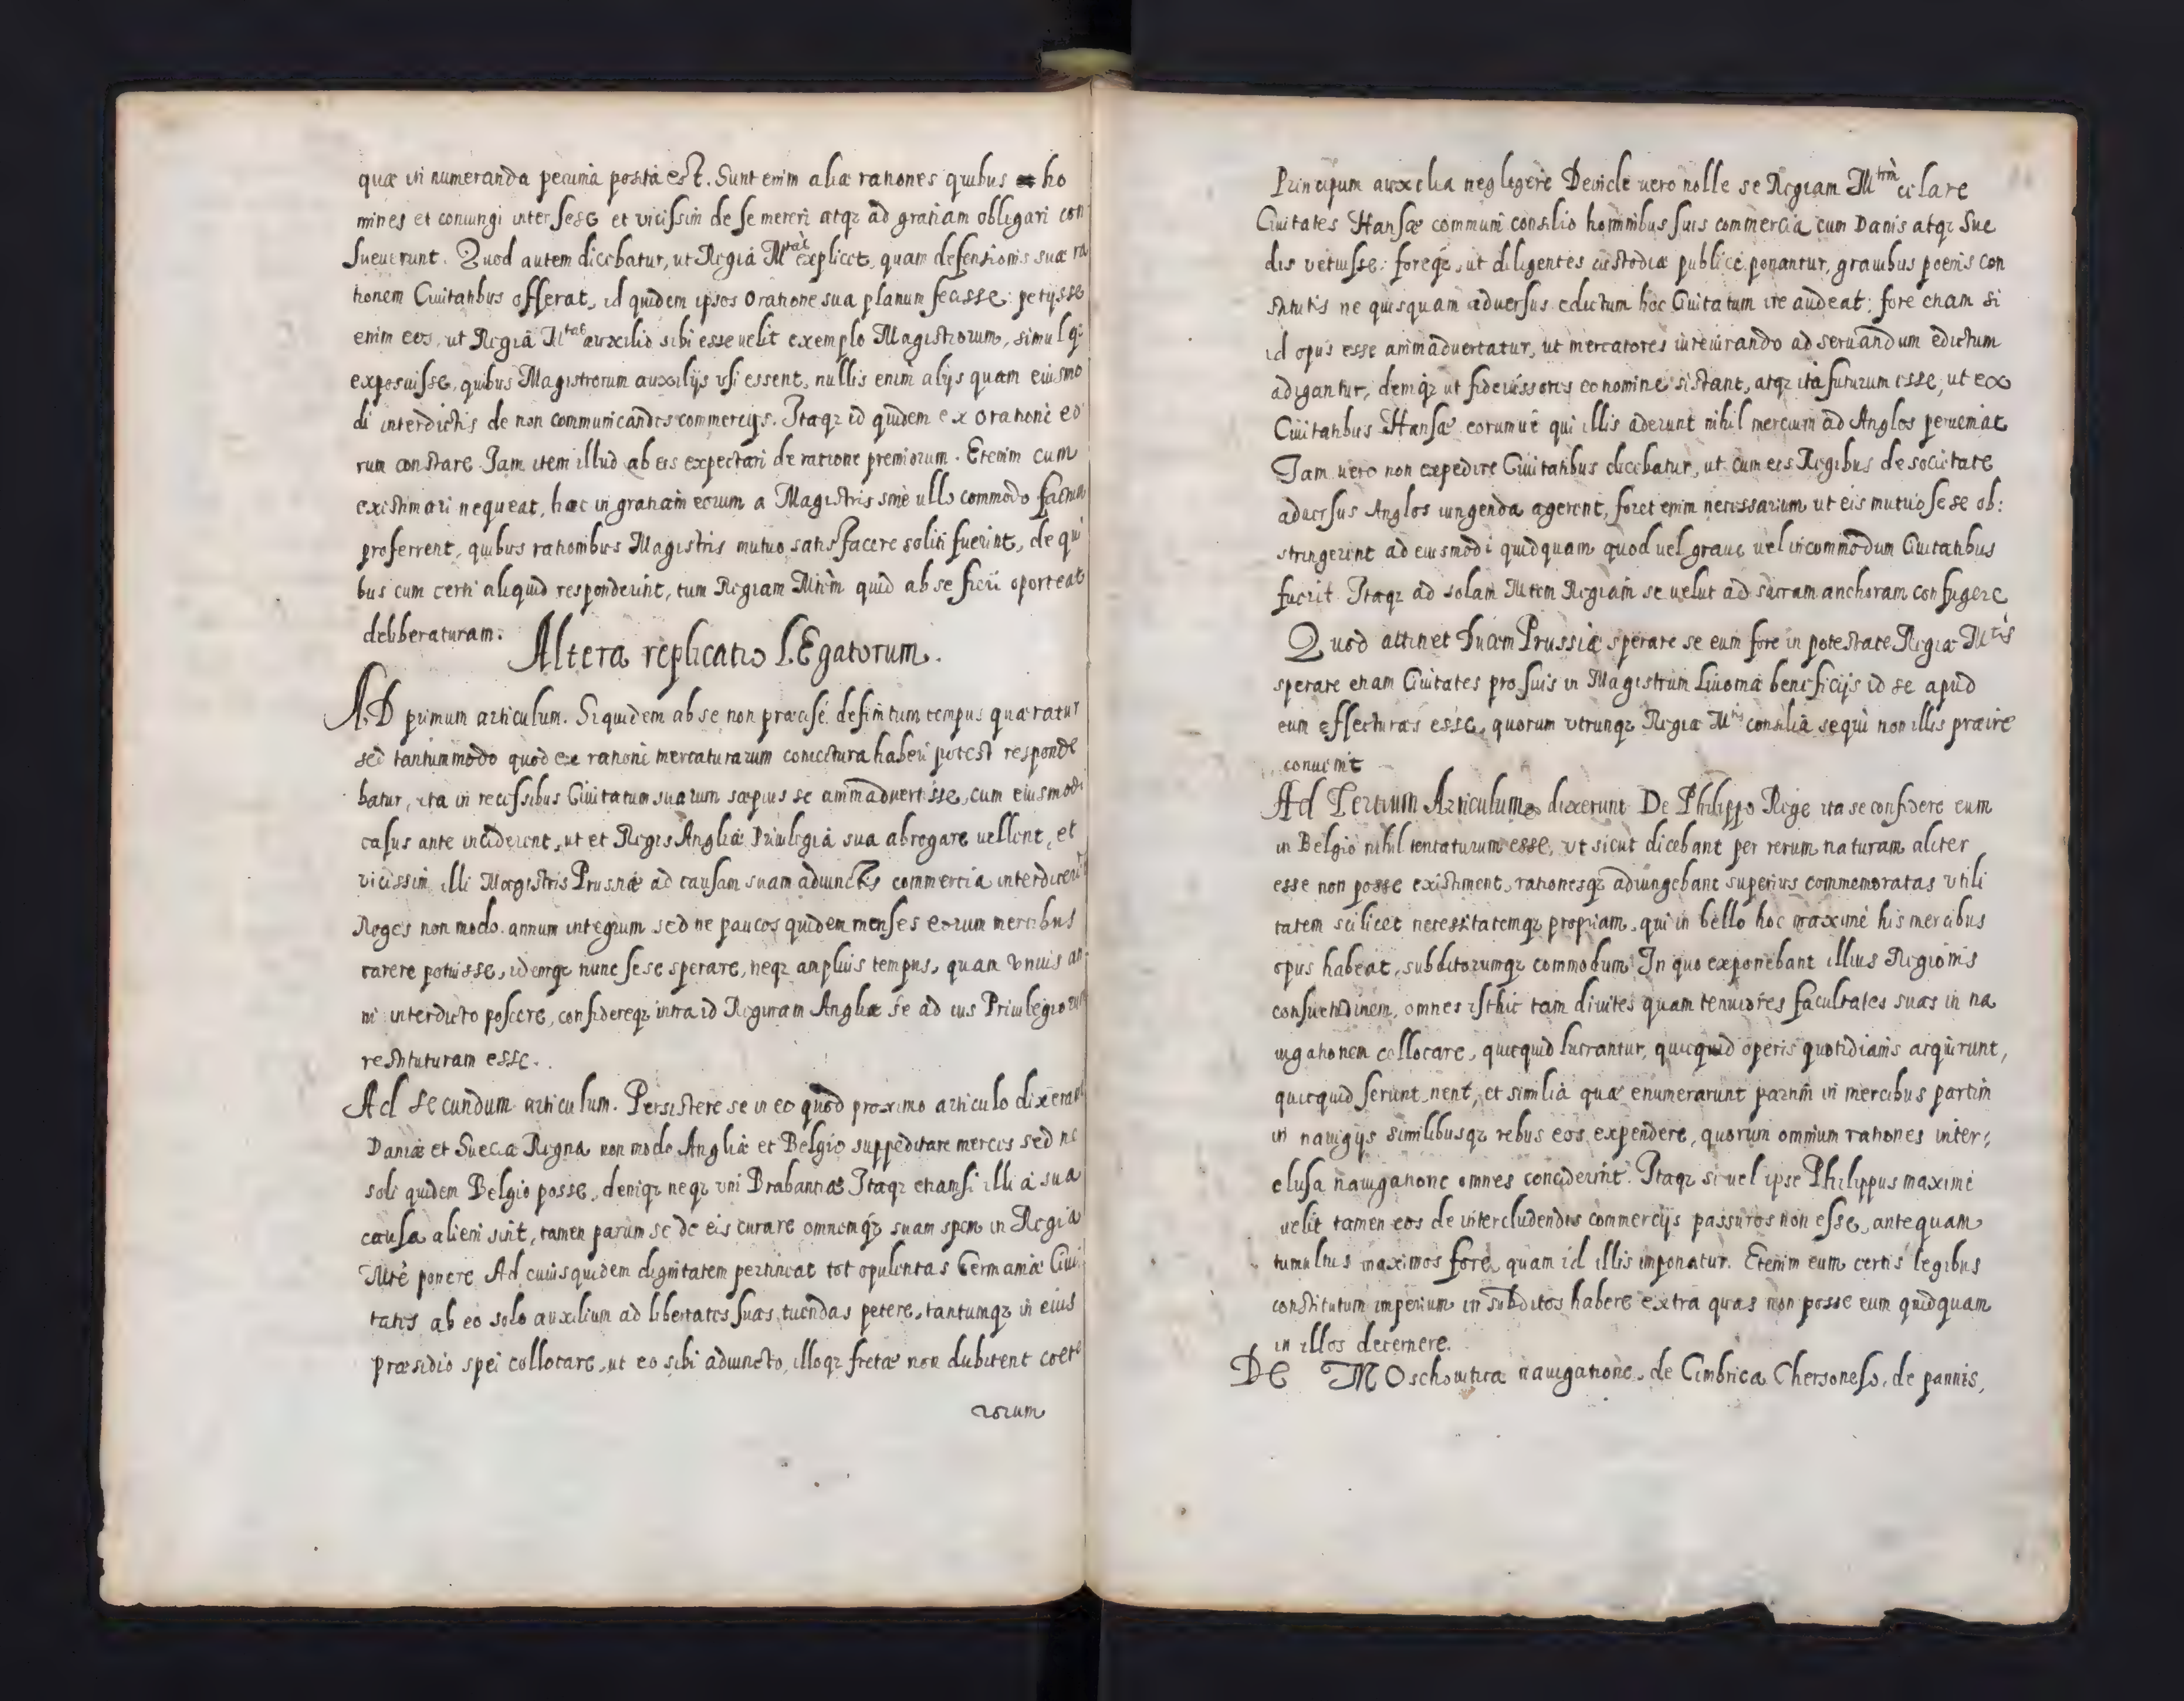 quæ in numeranda pecunia posita est. Sunt enim aliæ rationes quibus ho
mines et coniungi inter sese et vicissim de se mereri atq; ad gratiam obligari con
sueuerunt. Quod autem dicebatur, ut Regia Mtas explicet, quam defensionis suæ ra
tionem Ciuitatibus offerat, id quidem ipsos oratione sua planum fecisse: petijsse
enim eos, ut Regia Mtas auxilio sibi esse uelit exemplo Magistrorum, simul q;
exposuisse, quibus Magistrorum auxilijs vsi essent, nullis enim alijs quam eiusmo
di interdictis de non communicandis commercijs. Itaq; id quidem ex oratione eo
rum constare. Jam item illud ab eis expectari de ratione premiorum. Etenim cum
existimari nequeat, hæc in gratiam eorum a Magistris sine ullo commodo factum
proferrent, quibus rationibus Magistris mutuo satisfacere soliti fuerint, de qui
bus cum certi aliquid responderint, tum Regiam Mtem quid ab se fieri oporteat
deliberaturam.
Altera replicatio LEgatorum.
AD primum articulum. Siquidem ab se non præcisè definitum tempus quæratur
sed tantummodo quod ex ratione mercaturarum coniectura haberi potest responde
batur, ita in recessibus Ciuitatum suarum sæpius se animaduertisse, cum eiusmodi
casus ante inciderent, ut et Reges Angliæ Priuilegia sua abrogare uellent, et
vicissim illi Magistris Prussiæ ad causam suam adiunctis commercia interdicerent
Reges non modo annum integrum sed ne paucos quidem menses eorum mercibus
carere potuisse, idemq; nunc sese sperare, neq; amplius tempus, quam vnius an
ni interdicto poscere, confidereq; intra id Reginam Angliæ se ad ius Priuilegiorum
restituturam esse.
Ad secundum articulum. Persistere se in eo quod proximo articulo dixerant
Daniæ et Sueciæ Regna non modo Angliæ et Belgio suppeditare merces sed ne
soli quidem Belgio posse, deniq; neq; vni Brabantiæ Itaq; etiamsi illi à sua
causa alieni sint, tamen parum se de eis curare omnemq; suam spem in Regia
Mte ponere Ad cuius quidem dignitatem pertineat tot opulentas Germaniæ Ciui
tates ab eo solo auxilium ad libertates suas tuendas petere, tantumq; in eius
præsidio spei collocare, ut eo sibi adiuncto, illoq; fretæ non dubitent cæte
rorum
Principum auxilia negligere Deinde uero nolle se Regiam Mtem celare
Ciuitates Hansæ communi consilio hominibus suis commercia cum Danis atq; Sue
dis vetuisse: foreq;, ut diligentes custodiæ publicè ponantur, grauibus poenis con
stitutis ne quisquam aduersus edictum hoc Ciuitatum ire audeat: fore etiam si
id opus esse animaduertatur, ut mercatores iureiurando ad seruandum edictum
adigantur, deniq; ut fideiussores eo nomine sistant, atq; ita futurum esse, ut ex
Ciuitatibus Hansæ eorumuè qui illis aderunt nihil mercium ad Anglos perueniat
Jam uero non expedire Ciuitatibus dicebatur, ut cum eis Regibus de societate
aduersus Anglos iungenda agerent, foret enim necessarium ut eis mutuo sese ob:
stringerent ad eiusmodi quidquam quod uel graue uel incommodum Ciuitatibus
fuerit Itaq; ad solam Mtem Regiam se uelut ad sacram anchoram confugere
Quod attinet Ducem Prussiæ sperare se eum fore in potestate Regiæ Mtis
sperare etiam Ciuitates pro suis in Magistrum Liuoniæ beneficijs id se apud
eum effecturas esse, quorum vtrunq; Regiæ Mtis consilia sequi non illis præire
conuenit
Ad Tertium Articulum dixerunt De Philippo Rege ita se confidere eum
in Belgio nihil tentaturum esse, vt sicut dicebant per rerum naturam aliter
esse non posse existiment, rationesq; adiungebant superius commemoratas vtili
tatem scilicet necessitatemq; propriam, qui in bello hoc maximè his mercibus
opus habeat, subditorumq; commodum In quo exponebant illius Regionis
consuetudinem, omnes isthic tam diuites quam tenuiores facultates suas in na
uigationem collocare, quicquid lucrantur, quicquid operis quotidianis acquirunt,
quicquid serunt, nent, et similia quæ enumerarunt partim in mercibus partim
in nauigijs similibusq; rebus eos expendere, quorum omnium rationes inter:
clusa nauigatione omnes conciderint. Itaq; si uel ipse Philippus maximè
uelit tamen eos de intercludendis commercijs passuros non esse, antequam
tumultus maximos fore quam id illis imponatur. Etenim eum certis legibus
constitutum imperium in subditos habere extra quas non posse eum quidquam
in illos decernere.
DE MOschouitica nauigatione, de Cimbrica Chersoneso, de pannis,